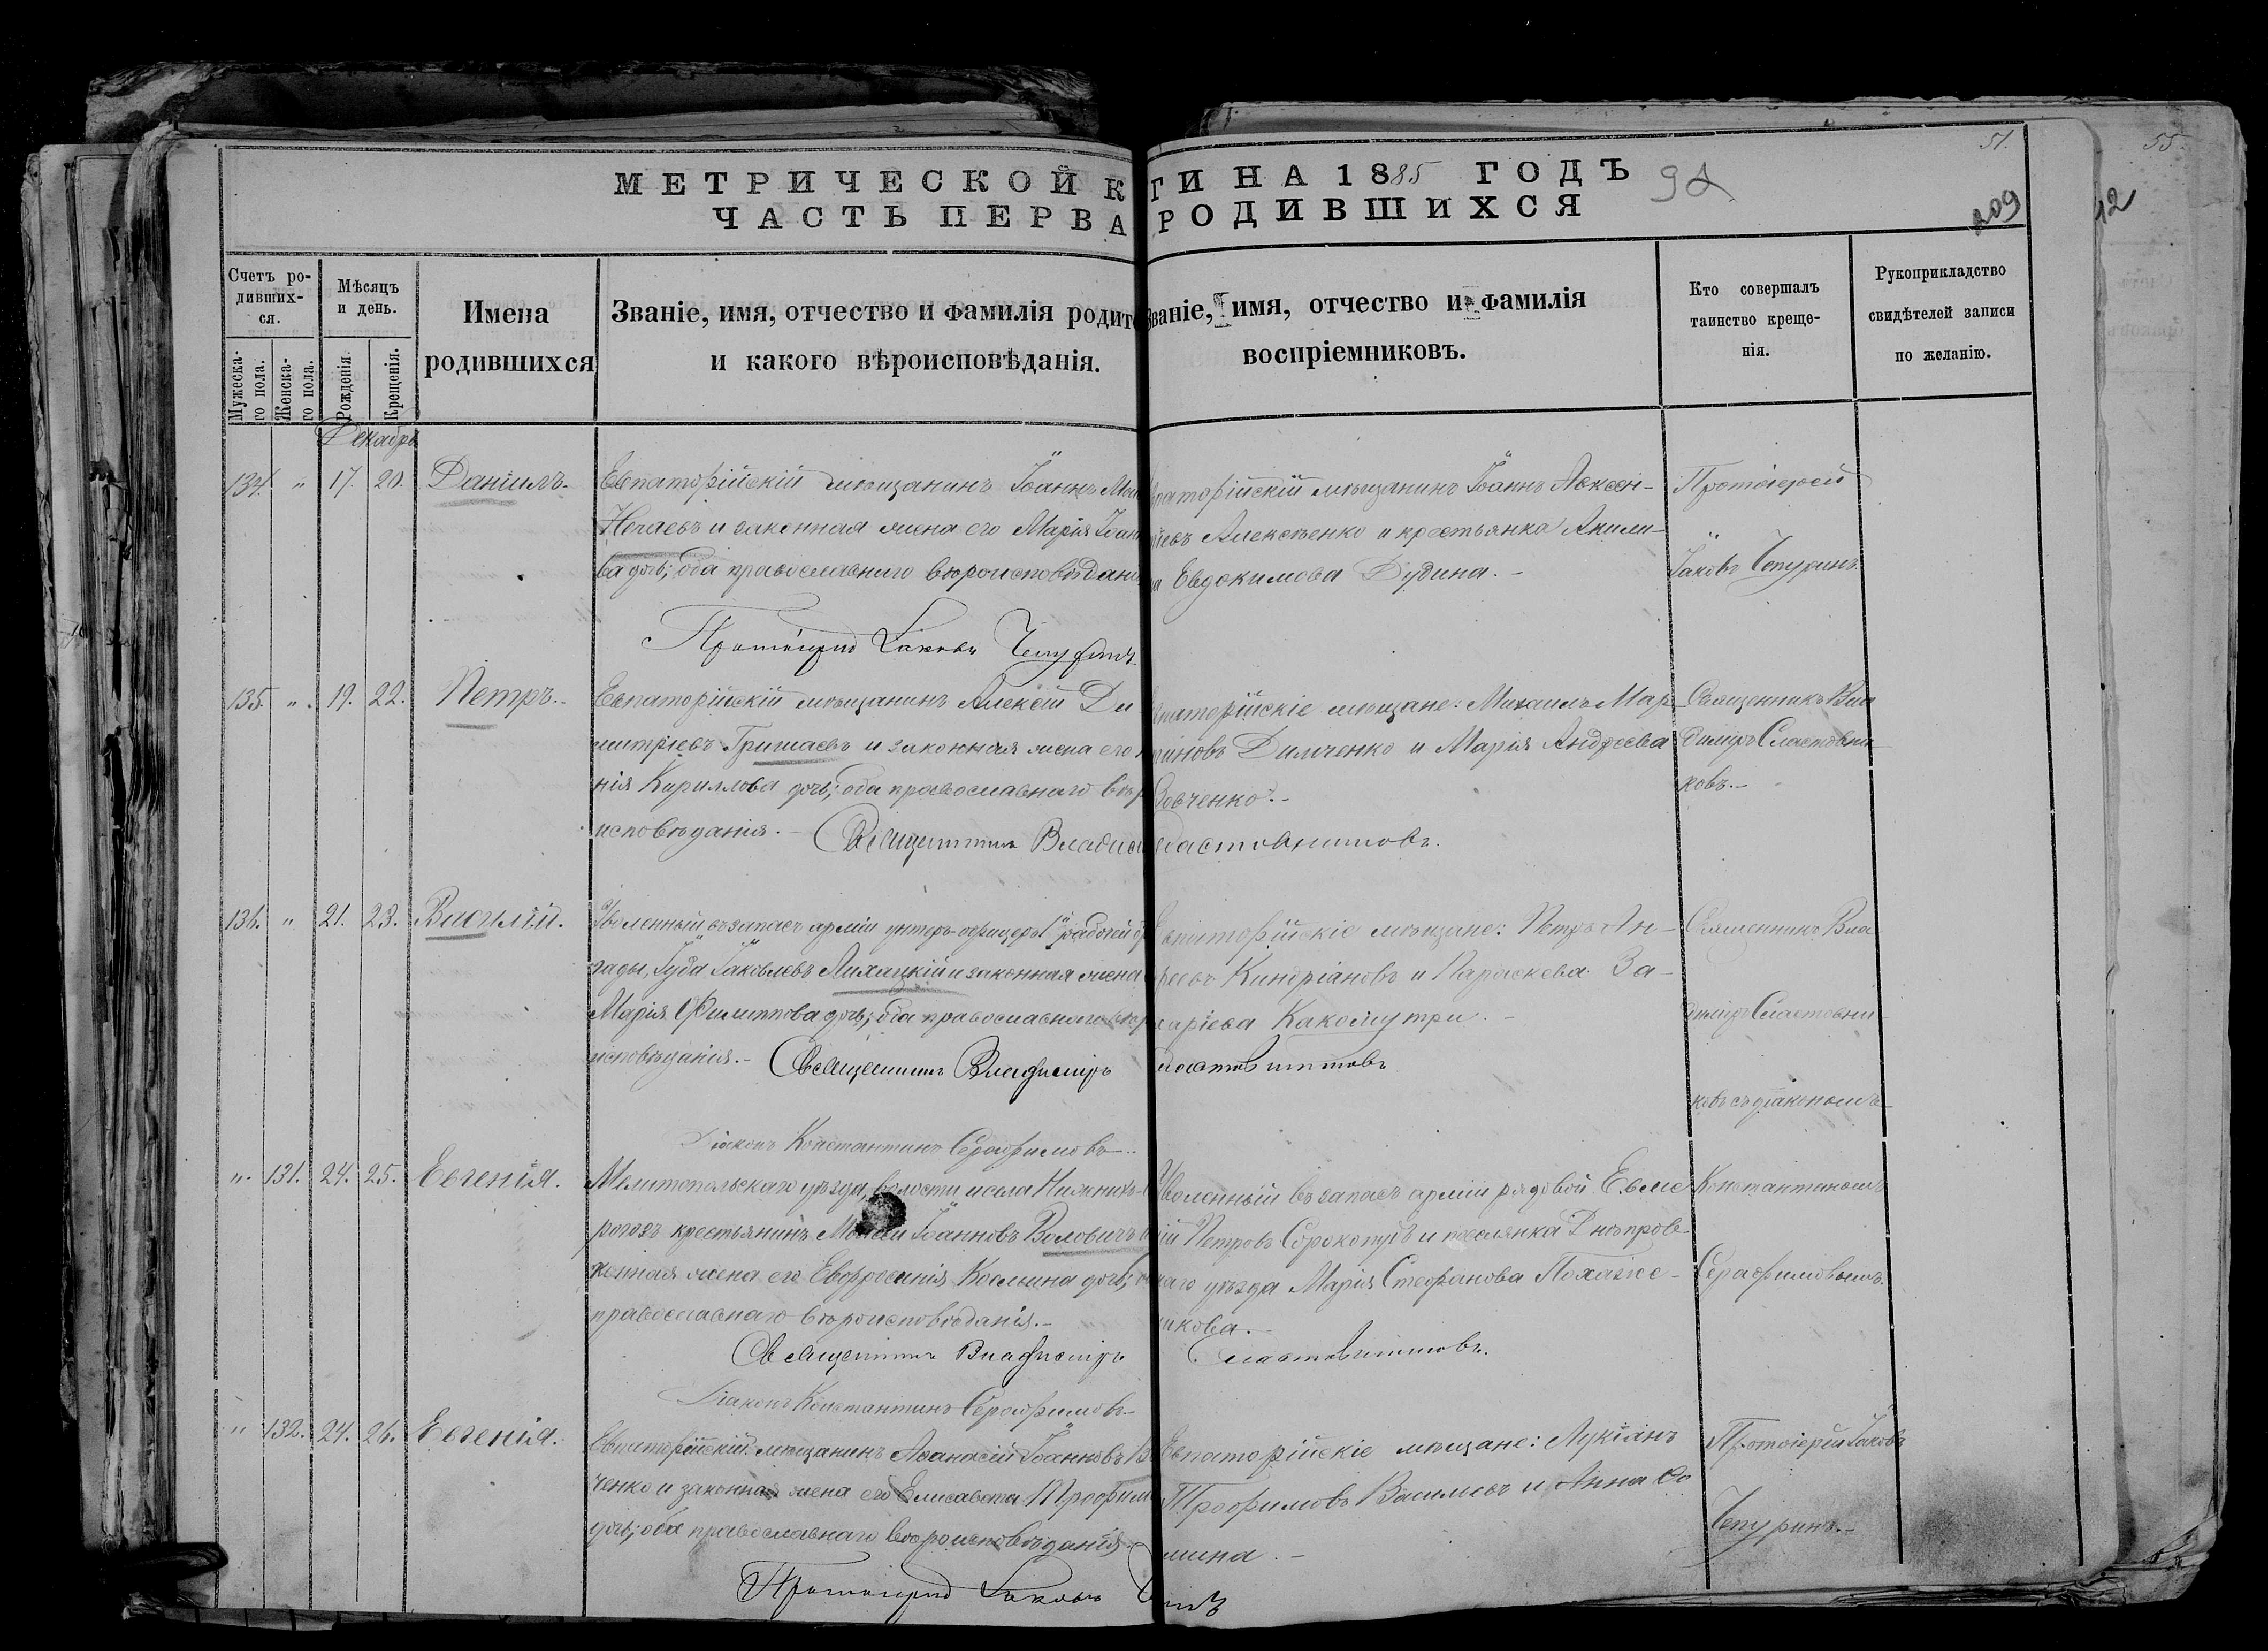 51.
55.
МЕТРИЧЕСКОЙ К ГИ НА 1885 ГОДЪ
ЧАСТЬ ПЕРВА РОДИВШИХСЯ
209
12
Счетъ ро-
дивших-
ся.
Мужеска-
го пола.
Женска-
го пола.
Мѣсяцъ
и день.
Рожденія.
Крещенія.
Имена
родившихся
Званіе, имя, отчество и фамилія родите
и какого вѣроисповѣданія.
Званіе, имя, отчество и фамилія
воспріемниковъ.
Кто совершалъ
таинство креще-
нія.
Рукоприкладство
свидѣтелей записи
по желанію.
Декабрь
134. " 17. 20. Даніилъ.
Евпаторійскій мѣщанинъ Іоаннъ
Нагаевъ и законная жена его Марія Іоан
ва дочь; оба православнаго вѣроисповѣдані
Протоіерей Іаковъ Чепуринъ.
впаторійскій мѣщанинъ Іоаннъ Авксен-
тіевъ Алексѣенко и крестьянка Акили-
на Евдокимова Дудина.-
Протоіерей
Іаковъ Чепуринъ.
135. " 19. 22. Петръ.-
Евпаторійскій мѣщанинъ Алексѣй Ди
митріевъ Гришаевъ и законная жена его
нія Кириллова дочь; оба православнаго вѣр
исповѣданія.- Священникъ Владим
впаторійскіе мѣщане: Михаилъ Мар-
тиновъ Димченко и Марія Андреева
Вовченко.-
ластовниковъ.
Священникъ Вла
диміръ Сластовни-
ковъ.-
136. " 21. 23. Василій.
Уволенный въ запасъ арміи унтеръ-офицеръ 1й рабочей бр
гады, Іуда Іаковлевъ Лихацкій и законная жена
Марія Филиппова дочь; оба православнаго вѣр
исповѣданія.- Священникъ Владиміръ
впаторійскіе мѣщане: Петръ Ан-
реевъ Кипріановъ и Параскева За-
харіева Какомутри.-
ластовниковъ
Діаконъ Константинъ Серафимовъ.-
Священникъ Вла
диміръ Сластовни-
ковъ съ діакономъ
". 131. 24. 25. Евгенія.
Мелитопольскаго уѣзда, волости и села Нижнихъ-
рогозъ крестьянинъ Моисей Іоанновъ Воловичъ
конная жена его Евфросинія Космина дочь;
православнаго вѣроисповѣданія.-
Священникъ Владиміръ
Уволенный въ запасъ арміи рядовой Евме
ній Петровъ Сорокопудъ и поселянка Днѣпров-
скаго уѣзда Марія Стефанова
никова.-
Сластовниковъ.
Константиномъ
Серафимовымъ.
Діаконъ Константинъ Серафимовъ.-
" 132. 24. 26. Евгенія.
Евпаторійскій мѣщанинъ Аѳанасій Іоанновъ
ченко и законная жена его Елисавета Трофим
дочь; оба православнаго вѣроисповѣданія.
Протоіерей Іаковъ
Евпаторійскіе мѣщане: Лукіанъ
Трофимовъ Василевъ и Анна Ѳо
мина.-
Протоіерей Іаковъ
Чепуринъ.-